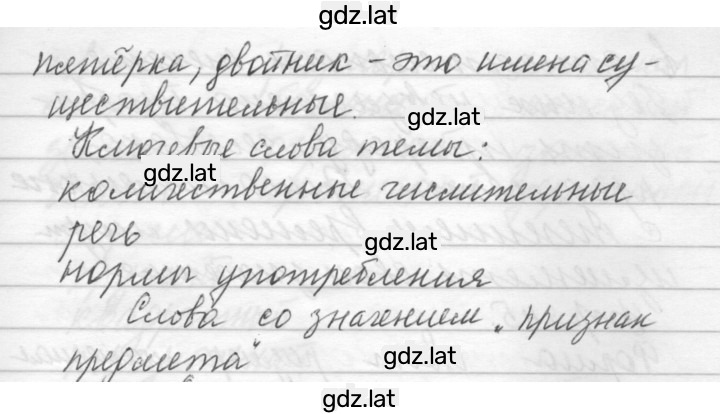 gdz.lat
пятёрка, двойник – это имена су-
ществительные.
gdz.lat
Ключевые слова темы:
gdz.lat
количественные числительные
речь
gdz.lat
нормы употребления
Слова со значением „признак
предмета"
gdz.lat
gdz.lat